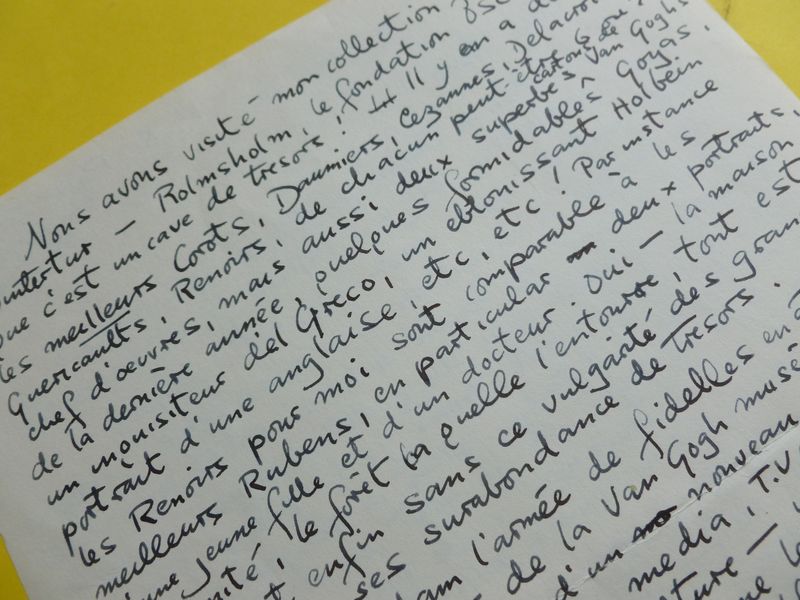 Nous avons visité mon collection
wintertur – Rolmsholm, le fondation
que c'est un cave de tresors! Il y en a
les meilleurs Corots, Daumiers, Cezannes, Delacroi
Guericaults, Renoirs, de chacun peut être
cartons de
chef d'œuvres, mais aussi deux superbes Van Goghs
de la dernière année, quelques formidables Goyas,
un inquisiteur del Greco, un éblonissant Holbein
portrait d'une anglaise, etc, etc! Par instance
les Renoirs pour moi sont comparable à les
meilleurs Rubens, en particular deux portraits,
une jeune fille et d'un docteur. Oui – la maison,
ité, le forêt la quelle l'entourre, tout est
enfin sans ce vulgarité des gran
ses surabondance de tresors.
dam l'armée de fidelles en
de la Van Gogh musé
d'un nouveau
media, T.V
ture –